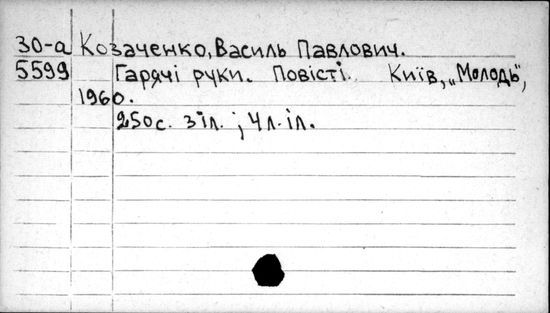 30-а Козаченко, Василь Павлович.
5599 Гарячі руки. Повісті. Київ, „Молодь",
1960.
250с. з іл. ; 4 л. іл.